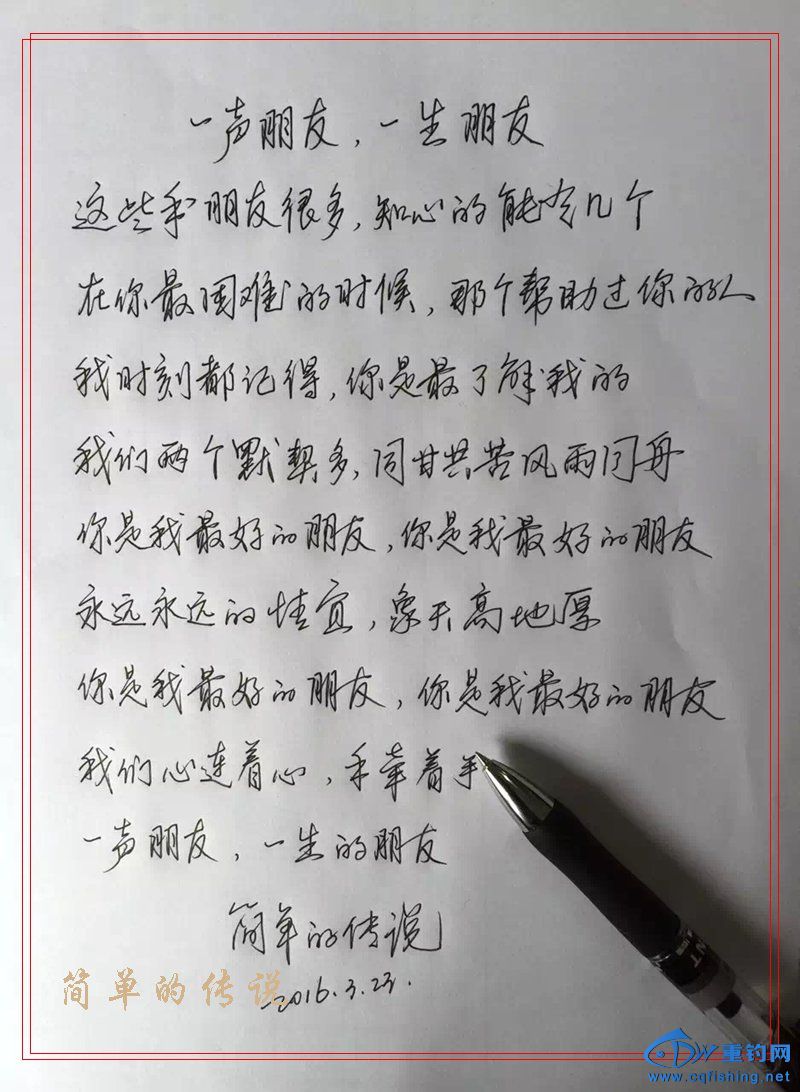 一声朋友，一生朋友
这些年朋友很多，知心的能有几个
在你最困难的时候，那个帮助过你的人
我时刻都记得，你是最了解我的
我们两个默契多，同甘共苦风雨同舟
你是我最好的朋友，你是我最好的朋友
永远永远的情宜，象天高地厚
你是我最好的朋友，你是我最好的朋友
我们心连着心，手牵着手
一声朋友，一生的朋友
简单的传说
2016.3.23.
简单的传说
重钓网
www.cqfishing.net